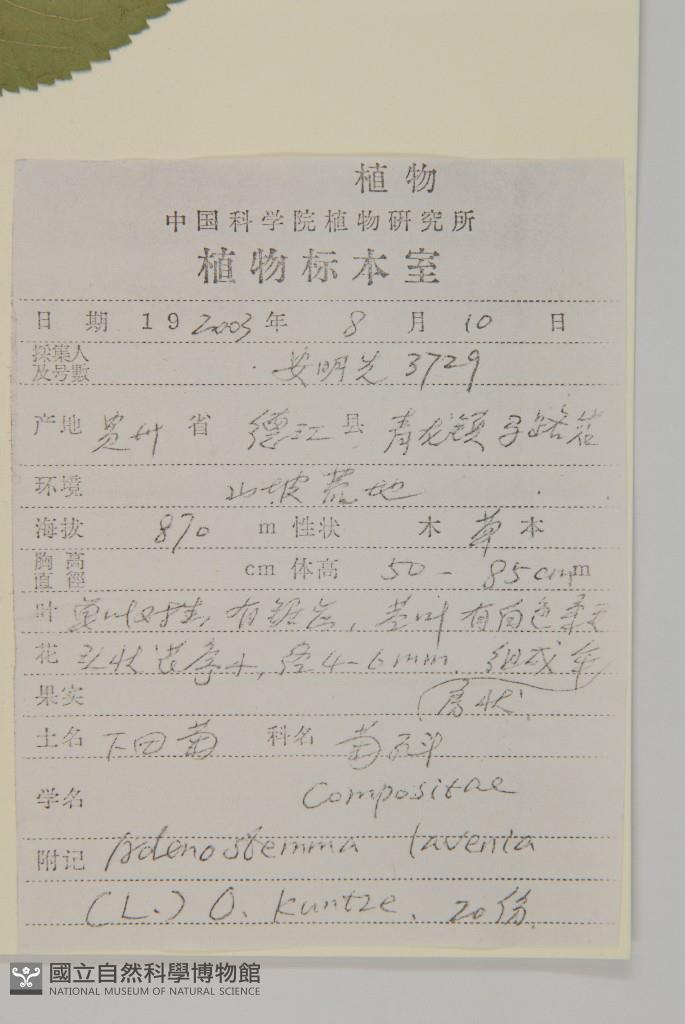 植物
中国科学院植物研究所
植物标本室
日期 19 2003年 8月 10日
採集人及号数 安明先 3729
产地 贵州省 德江县 青龙镇
环境 山坡荒地
海拔 870 m 性状 木 草本
胸高直径 cm 体高 50-85cm m
叶 单叶对生, 有锯齿, 茎叶有白色柔毛
花 头状花序小, 径4-6mm, 组成伞房状
果实
土名 下田菊 科名 菊科
学名 Compositae
附记 Adenostemma lavenia
(L.) O. Kuntze. 20份.
國立自然科學博物館
NATIONAL MUSEUM OF NATURAL SCIENCE